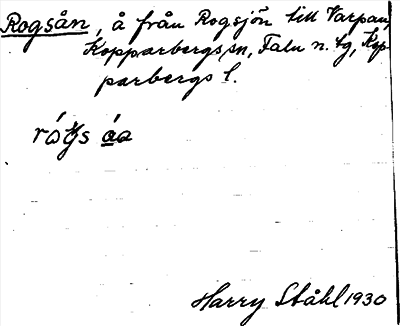 Rogsån, å från Rogsjön till Varpan,
Kopparbergs sn, Falu n. tg, Kop-
parbergs l.
Harry Ståhl 1930